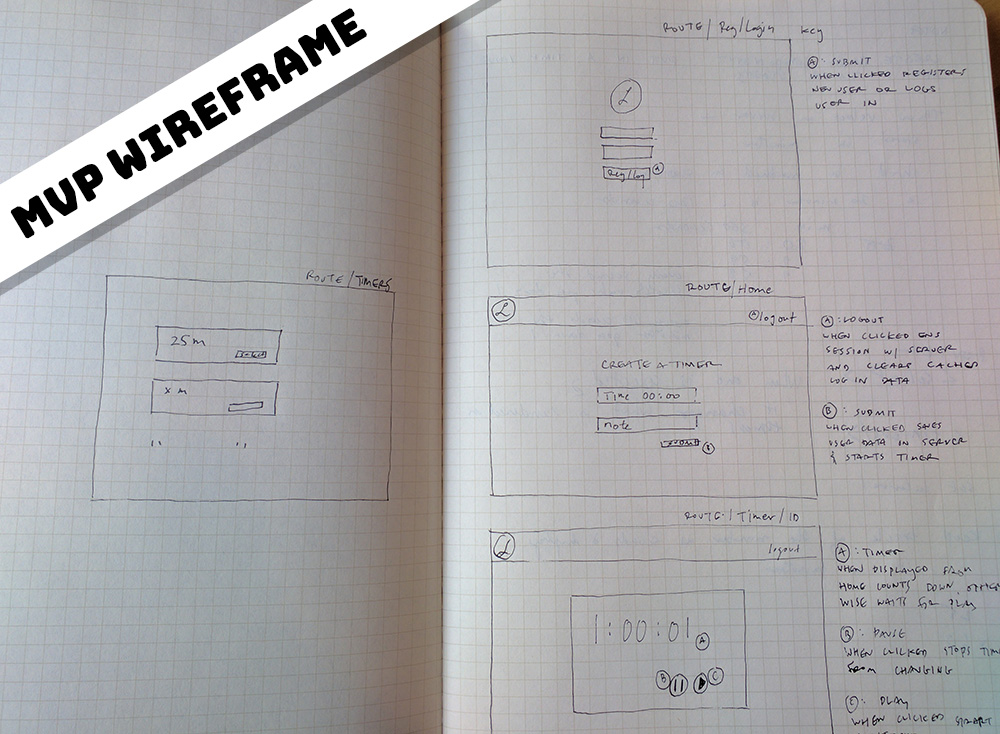 MVP WIREFRAME
ROUTE / TIMERS
25 m
x m
ROUTE / Reg / Login
key
L
Reg/Log A
A : SUBMIT
WHEN CLICKED REGISTERS
NEW USER OR LOGS
USER IN
ROUTE / Home
L
A logout
CREATE A TIMER
Time 00:00
note
B
A : LOGOUT
WHEN CLICKED ENS
SESSION W/ SERVER
AND CLEARS CACHED
LOG IN DATA
B : SUBMIT
WHEN CLICKED SAVES
USER DATA IN SERVER
& STARTS TIMER
ROUTE / Timer / ID
L
logout
1:00:01 A
B C
A : TIMER
WHEN DISPLAYED FROM
HOME COUNTS DOWN, OTHER
WISE WAITS FOR PLAY
B : PAUSE
WHEN CLICKED STOPS TIM
FROM CHANGING
C : PLAY
WHEN CLICKED START